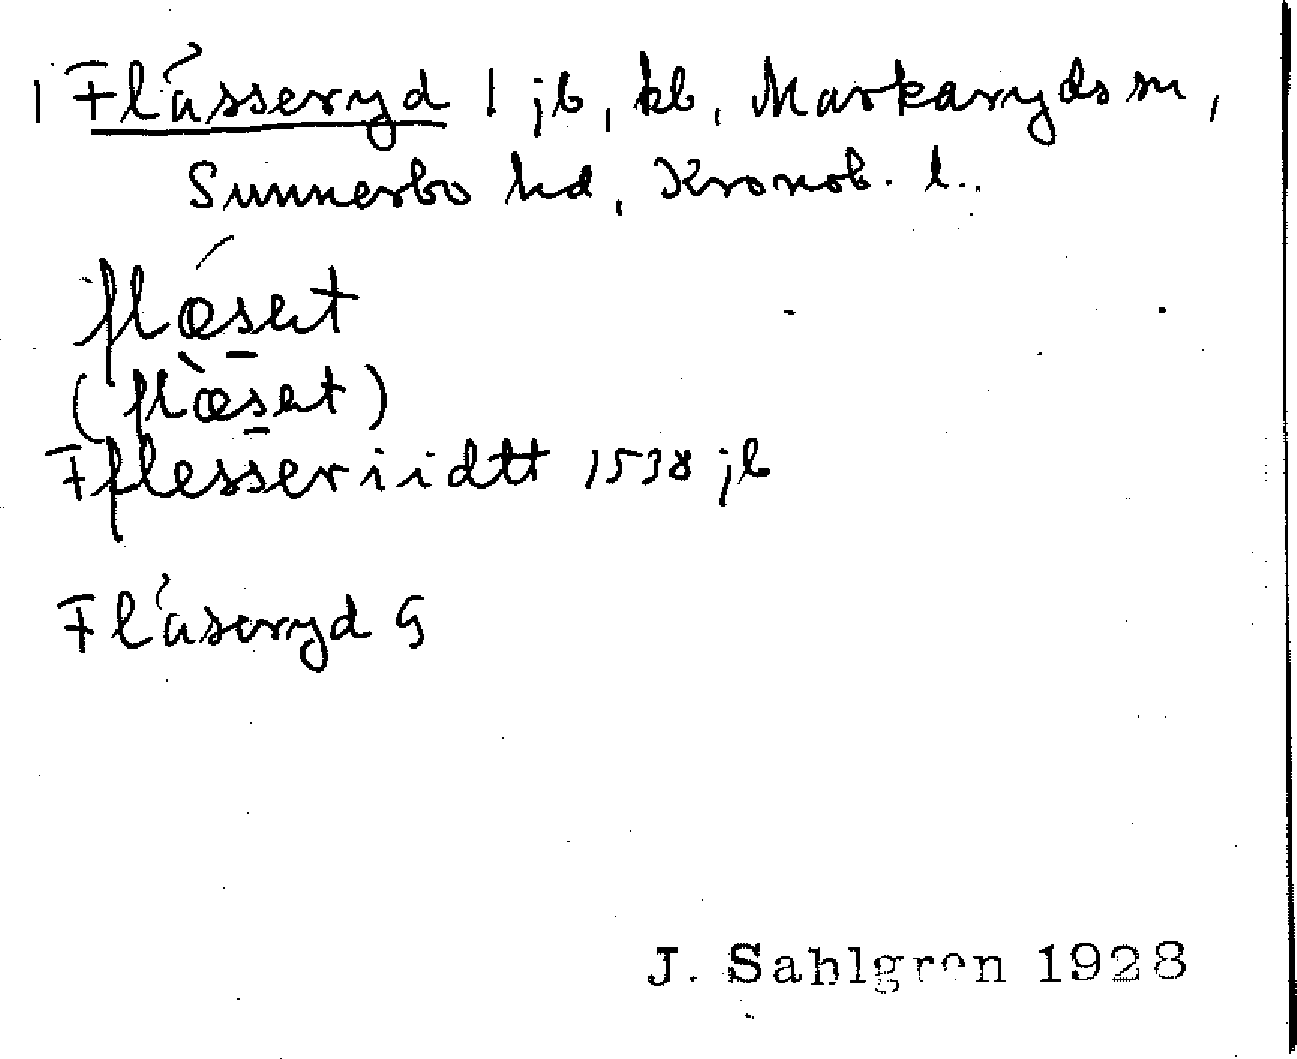 1 Flåsseryd 1 jb, kb, Markaryds sn,
Sunnerbo hd, Kronob. l.
flǿset
(flø̀set)
Fflesseriidtt 1538 jb
Flåseryd G
J. Sahlgren 1928